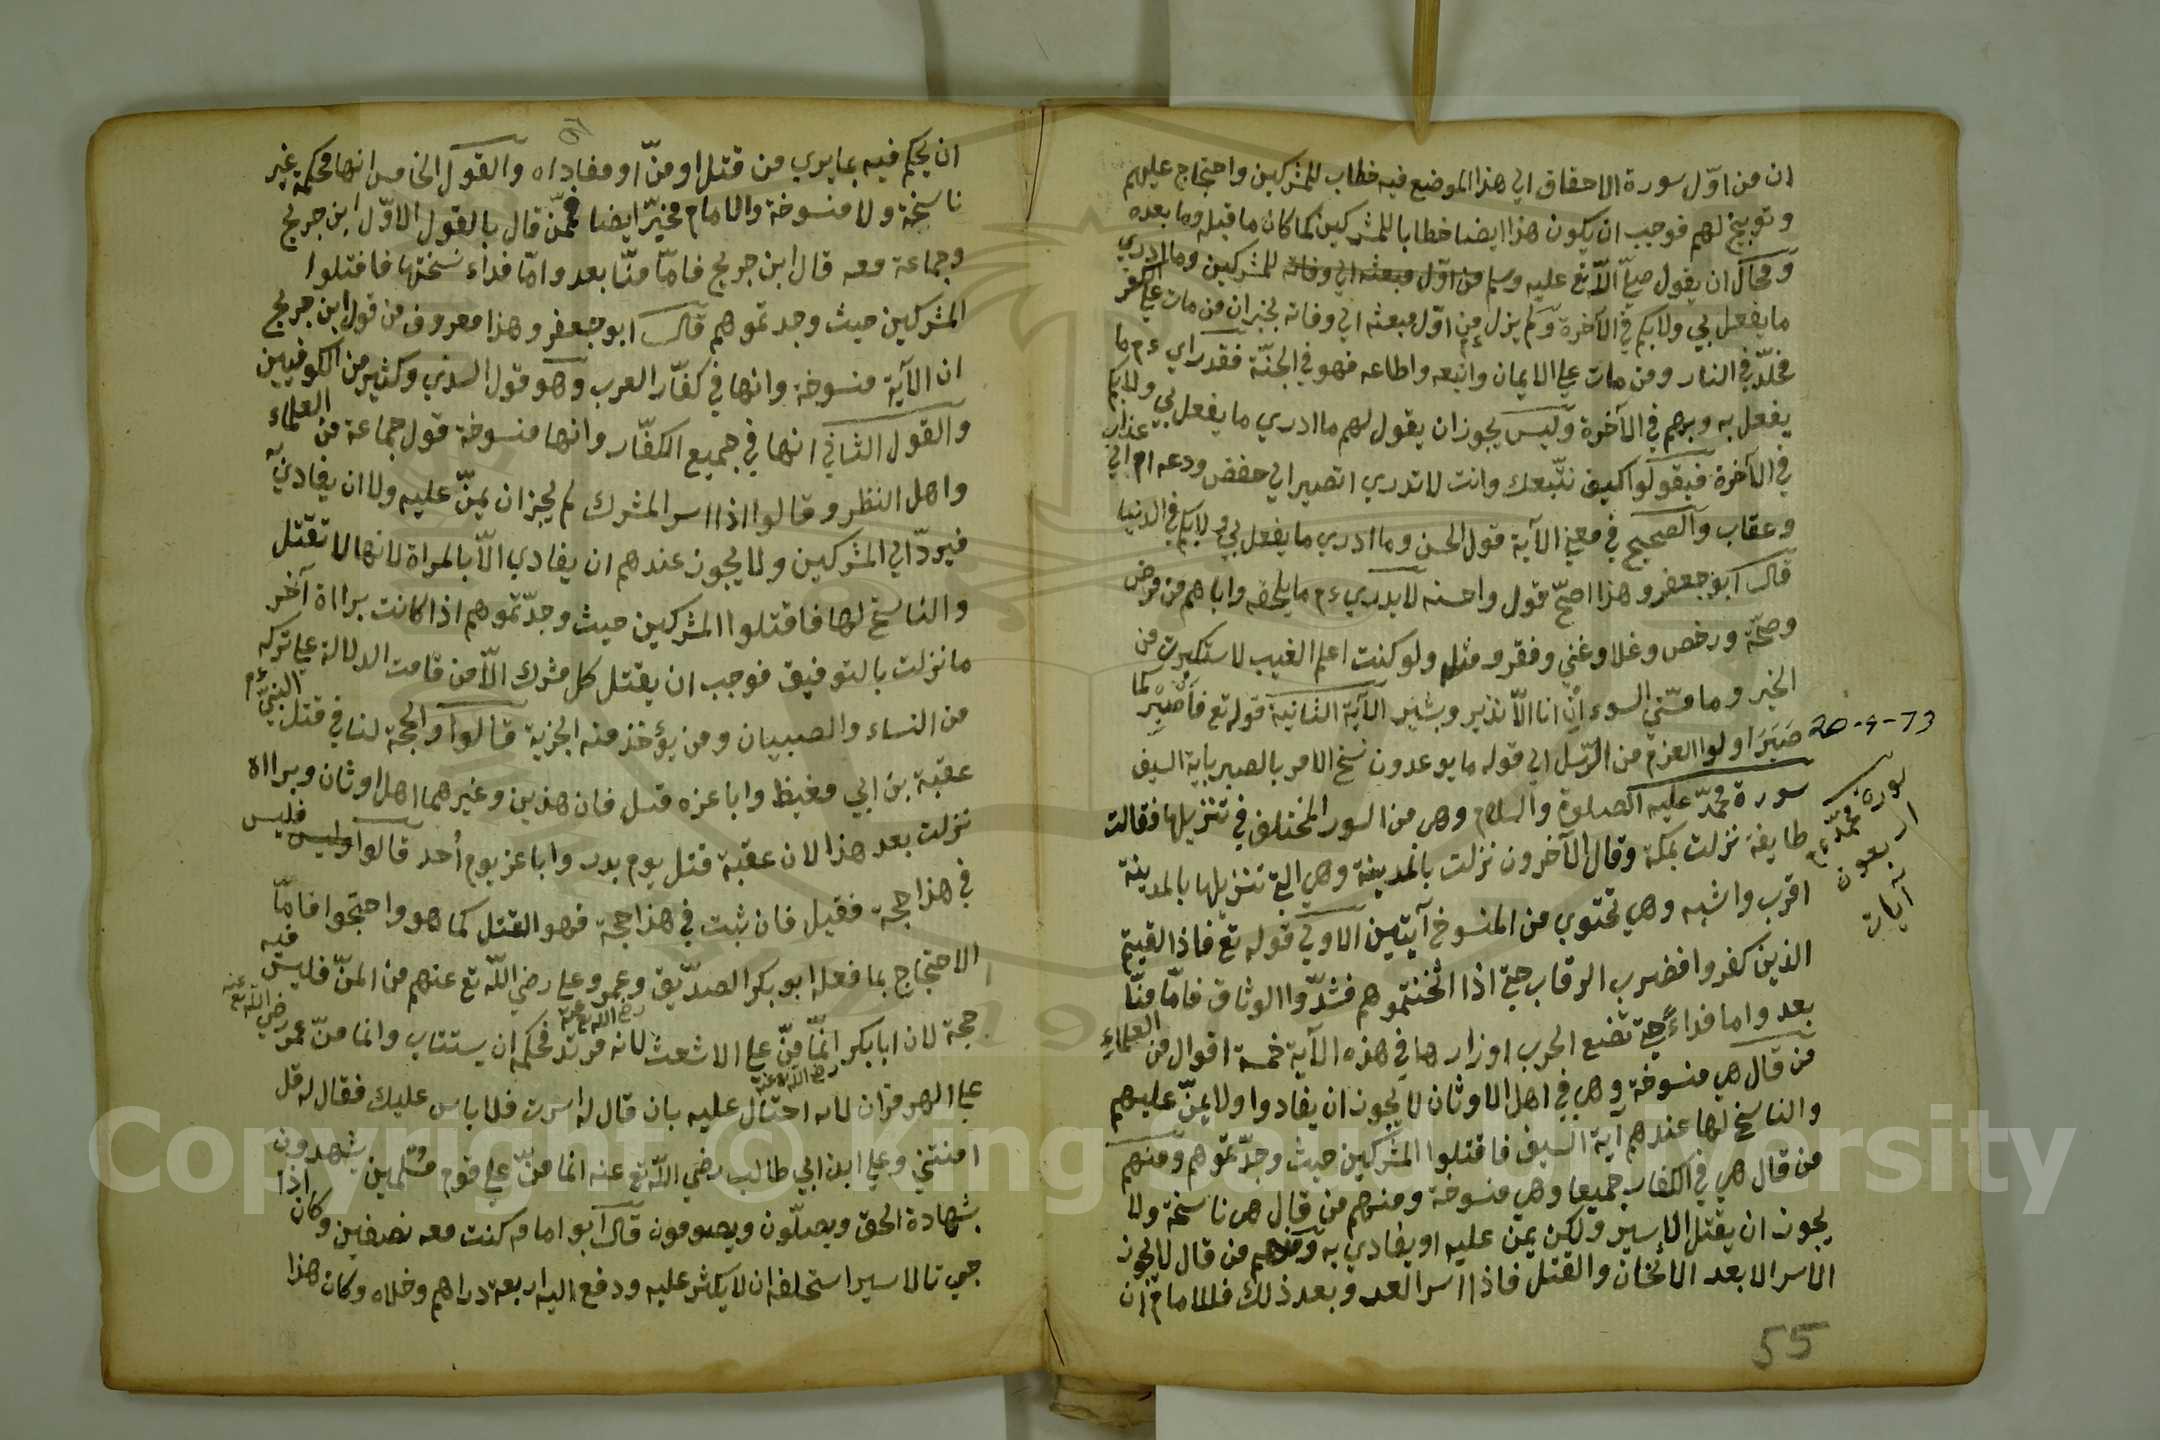 ان من اوّل سورة الاحقاق الي هذا الموضع فيه خطاب للمشركين واحتجاج عليهم
وتوبيخ لهم فوجب ان يكون هذا ايضا خطابا للمشركين كما كان ما قبله وما بعده
ومحال ان يقول صلّي اللّٰه تع عليه وسلم من اوّل مبعثه الي وفاته للمشركين وما ادري
ما يفعل بي ولا بكم في الآخرة ولم يزل من اوّل مبعثه الي وفاته يخبر ان من مات علي الكفر
مخلّد في النار ومن مات علي الايمان واتبعه واطاعه فهو في الجنّة فقد راي ءم ما
يفعل به وبهم في الآخرة وليس يجوز ان يقول لهم ما ادري ما يفعل بي ولا بكم
في الآخرة فيقولوا كيف نتّبعك وانت لا تدري اتصير الي خفض ودعه ام الي عذاب
وعقاب والصحيح في معني الآية قول الحسن وما ادري ما يفعل بي ولا بكم في الدنيا
قال ابو جعفر وهذا اصحّ قول واحسنه لا يدري ءم ما يلحقه واياهم من مرض
وصحّة ورخص وغلا وغني وفقر ومثله ولو كنت اعلم الغيب لاستكثرت من
الخير وما مسّني السوء ان انا الّا نذير وبشير الآية الثانية قوله تع فاصبر كما
صبر اولوا العزم من الرّسل الي قوله ما يوعدون نسخ الامر بالصبر باية السيف
20-9-73
سورة محمّد عليه الصلوة والسلام وهي من السور المختلف في تنزيلها فقالت
سورة محمّد ءم
اربعون
آيات
طايفة نزلت بمكة وقال الآخرون نزلت بالمدينة وهي الي تنزيلها بالمدينة
اقرب واشبه وهي تحتوي من المنسوخ آيتين الاولي قوله تع فاذا لقيتم
الذين كفروا فضرب الرقاب حتي اذا اثخنتموهم فشدّوا الوثاق فامّا منّا
بعد واما فداءً حتي تضع الحرب اوزارها في هذه الآية خمسة اقوال من العلماء
من قال هي منسوخة وهي في اهل الاوثان لا يجوز ان يفادوا ولا يمنّ عليهم
والناسخ لها عندهم آية السيف فاقتلوا المشركين حيث وجدّتموهم ومنهم
من قال هي في الكفار جميعا وهي منسوخة ومنهم من قال هي ناسخة ولا
يجوز ان يقتل الاسير ولكن يمن عليه او يفادي به ومنهم من قال لا يجوز
الاسر الا بعد الاثخان والقتل فاذا اسر العد وبعد ذلك فللامام ان
55
ان يحكم فيه بما يري من قتل او منّ او مفاداه والقول الخامس انها محكمة غير
ناسخة ولا منسوخة والامام مخيّر ايضا فممّن قال بالقول الاوّل ابن جريج
وجماعة معه قال ابن جريج فامّا منّا بعد وامّا فداء نسختها فاقتلوا
المشركين حيث وجدتموهم قال ابو جعفر وهذا معروف من قول ابن جريج
ان الآية منسوخة وانها في كفّار العرب وهو قول السدي وكثير من الكوفيين
والقول الثاني انها في جميع الكفّار وانها منسوخة قول جماعة من العلماء
واهل النظر وقالوا اذا اسر المشرك لم يجز ان يمنّ عليه ولا ان يفادي به
فيردّ الي المشركين ولا يجوز عندهم ان يفادي الّا بالمراة لانها لا تقتل
والناسخ لها فاقتلوا المشركين حيث وجدّتموهم اذا كانت براءة آخر
ما نزلت بالتوفيق فوجب ان يقتل كل مشرك الّا من قامت الدلالة علي تركه
من النساء والصبيان ومن يؤخذ منه الجزية قالوا والحجة لنا في قتل النبيّ ءم
عقبة بن ابي مغيظ وابا عزه قتل فان هذين وغيرهما اهل اوثان وبراءة
نزلت بعد هذا لان عقبة قتل يوم بدر وابا عز يوم أحد قالوا وليس فليس
في هذا حجة فقيل فان ثبت في هذا حجة فهو القتل كما هو واحتجوا فامّا
الاحتجاج بما فعله ابو بكر الصدّيق وعمر وعلي رضي اللّه تع عنهم من المنّ فليس فيه
حجة لان ابا بكر رضي الله تع عنه انمّا منّ علي الاشعث لانه مرتد فحكمه ان يستتاب وانما منّ عمر رضي الله تع عنه
علي الهرمزان لانه احتال عليه بان قال له است فلا باس عليك فقال له قل
امنتني وعلي ابن ابي طالب رضي اللّه تع عنه انما منّ علي قوم مسلمين يشهدون
بشهادة الحق ويصلّون ويصومون قال ابو امامه كنت معه نصفين وكان اذا
جي تا لاسير استحلفه ان لا يكثر عليه ودفع اليه اربعة دراهم وخلاه وكان هذا
Copyright © King Saud University